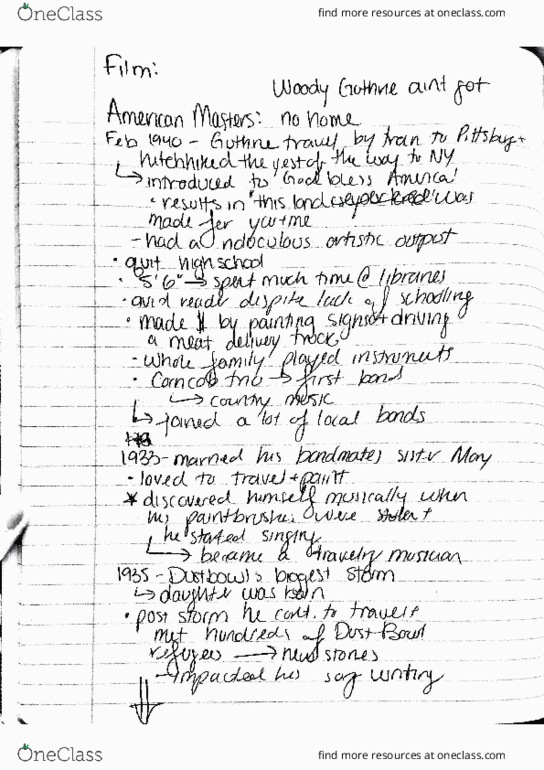 OneClass
find more resources at oneclass.com
Film:
Woody Guthrie aint got
American Masters: no home
Feb 1940 - Guthrie travel by train to Pittsburg +
hitchhiked the rest of the way to NY
↳ introduced to "God bless America"
• results in "this land was
made for you + me
- had a ridiculous artistic output
• quit highschool
• 5'6" → spent much time @ libraries
• avid reader despite lack of schooling
• made $ by painting signs + driving
a meat delivery truck
- whole family played instruments
• Corncob trio → first band
↳ country music
↳ joined a lot of local bands
1933 - married his bandmates sister Mary
• loved to travel + paint
* discovered himself musically when
his paintbrushes were stolen +
he started singing
↳ became a traveling musician
1935 - Dustbowl's biggest storm
↳ daughter was born
• post storm he cont. to travel +
met hundreds of Dust Bowl
refugees → new stories
- impacted his song writing
OneClass
find more resources at oneclass.com